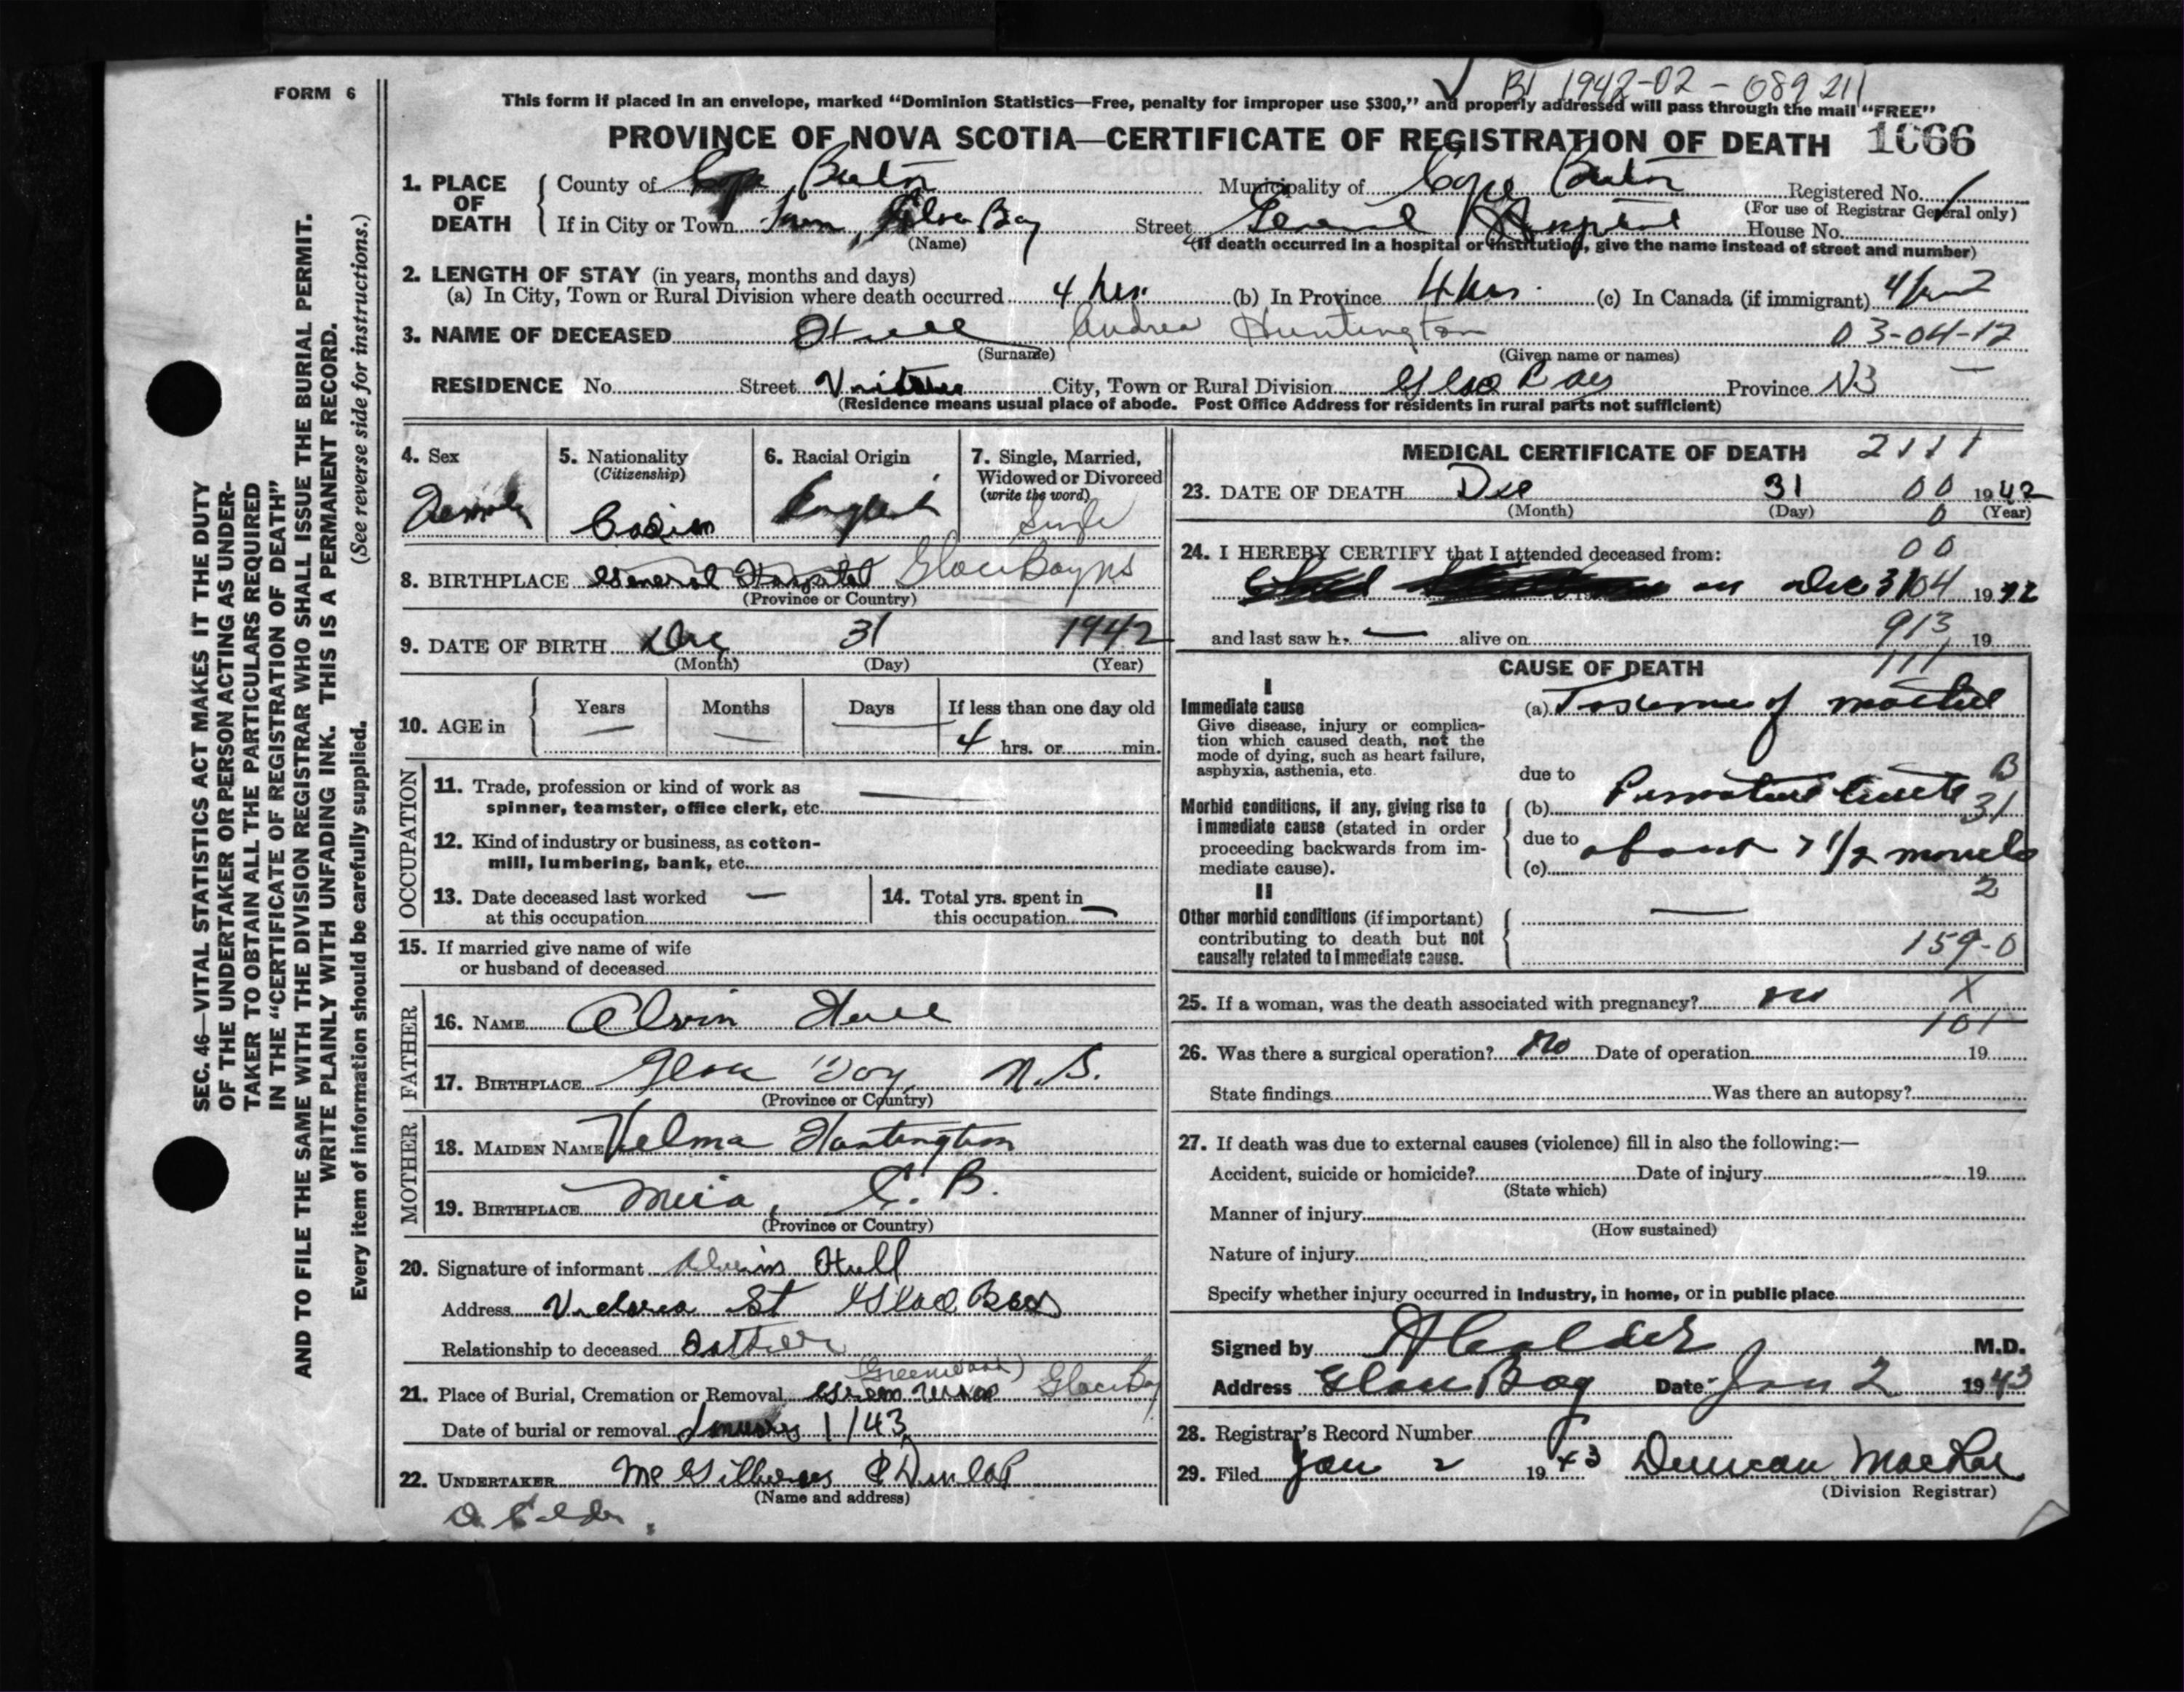 BI 1942-02-089211
FORM 6
This form if placed in an envelope, marked "Dominion Statistics—Free, penalty for improper use $300," and properly addressed will pass through the mail "FREE"
PROVINCE OF NOVA SCOTIA—CERTIFICATE OF REGISTRATION OF DEATH 1066
1. PLACE OF DEATH
County of Cape Breton Municipality of Cape Breton Registered No.
(For use of Registrar General only)
If in City or Town Town, Glace Bay Street General Hospital House No.
(Name) (If death occurred in a hospital or institution, give the name instead of street and number)
2. LENGTH OF STAY (in years, months and days)
(a) In City, Town or Rural Division where death occurred 4 hrs. (b) In Province 4 hrs. (c) In Canada (if immigrant) 4 hrs
3. NAME OF DECEASED Hull Andrea Huntington 03-04-12
(Surname) (Given name or names)
RESIDENCE No. Street City, Town or Rural Division Glace Bay Province
(Residence means usual place of abode. Post Office Address for residents in rural parts not sufficient)
4. Sex
Female
5. Nationality
(Citizenship)
6. Racial Origin
English
7. Single, Married, Widowed or Divorced
(write the word)
Single
8. BIRTHPLACE General Hospital Glace Bay NS
(Province or Country)
9. DATE OF BIRTH Dec 31 1942
(Month) (Day) (Year)
10. AGE in Years Months Days If less than one day old
— — — 4 hrs. or min.
OCCUPATION
11. Trade, profession or kind of work as
spinner, teamster, office clerk, etc. —
12. Kind of industry or business, as cotton-
mill, lumbering, bank, etc.
13. Date deceased last worked —
at this occupation
14. Total yrs. spent in
this occupation —
15. If married give name of wife
or husband of deceased
FATHER
16. NAME Alvin Hull
17. BIRTHPLACE Glace Bay, N.S.
(Province or Country)
MOTHER
18. MAIDEN NAME Velma Huntington
19. BIRTHPLACE Mira, C.B.
(Province or Country)
20. Signature of informant Alvin Hull
Address Victoria St Glace Bay
Relationship to deceased Father
(Greenwood)
21. Place of Burial, Cremation or Removal Greenwood Glace Bay
Date of burial or removal January 1/43
22. UNDERTAKER & Dunlop
(Name and address)
MEDICAL CERTIFICATE OF DEATH 2111
23. DATE OF DEATH Dec 31 00 1942
(Month) (Day) (Year)
0
24. I HEREBY CERTIFY that I attended deceased from: 00
on Dec 31 04 1942
and last saw h. — alive on 913 19
111
CAUSE OF DEATH
I
Immediate cause
Give disease, injury or complica-
tion which caused death, not the
mode of dying, such as heart failure,
asphyxia, asthenia, etc.
(a) Toxaemia of mother
due to B
Morbid conditions, if any, giving rise to
immediate cause (stated in order
proceeding backwards from im-
mediate cause).
(b) Premature 31
due to about 7 1/2 months
(c)
2
II
Other morbid conditions (if important)
contributing to death but not
causally related to immediate cause.
—
159-0
25. If a woman, was the death associated with pregnancy? no X
101
26. Was there a surgical operation? No Date of operation 19
State findings Was there an autopsy?
27. If death was due to external causes (violence) fill in also the following:—
Accident, suicide or homicide? Date of injury 19
(State which)
Manner of injury
(How sustained)
Nature of injury
Specify whether injury occurred in Industry, in home, or in public place
Signed by A Calder M.D.
Address Glace Bay Date Jan 2 1943
28. Registrar's Record Number
29. Filed Jan 2 1943 Duncan MacRae
(Division Registrar)
SEC. 46—VITAL STATISTICS ACT MAKES IT THE DUTY
OF THE UNDERTAKER OR PERSON ACTING AS UNDER-
TAKER TO OBTAIN ALL THE PARTICULARS REQUIRED
IN THE "CERTIFICATE OF REGISTRATION OF DEATH"
AND TO FILE THE SAME WITH THE DIVISION REGISTRAR WHO SHALL ISSUE THE BURIAL PERMIT.
WRITE PLAINLY WITH UNFADING INK. THIS IS A PERMANENT RECORD.
Every item of information should be carefully supplied. (See reverse side for instructions.)